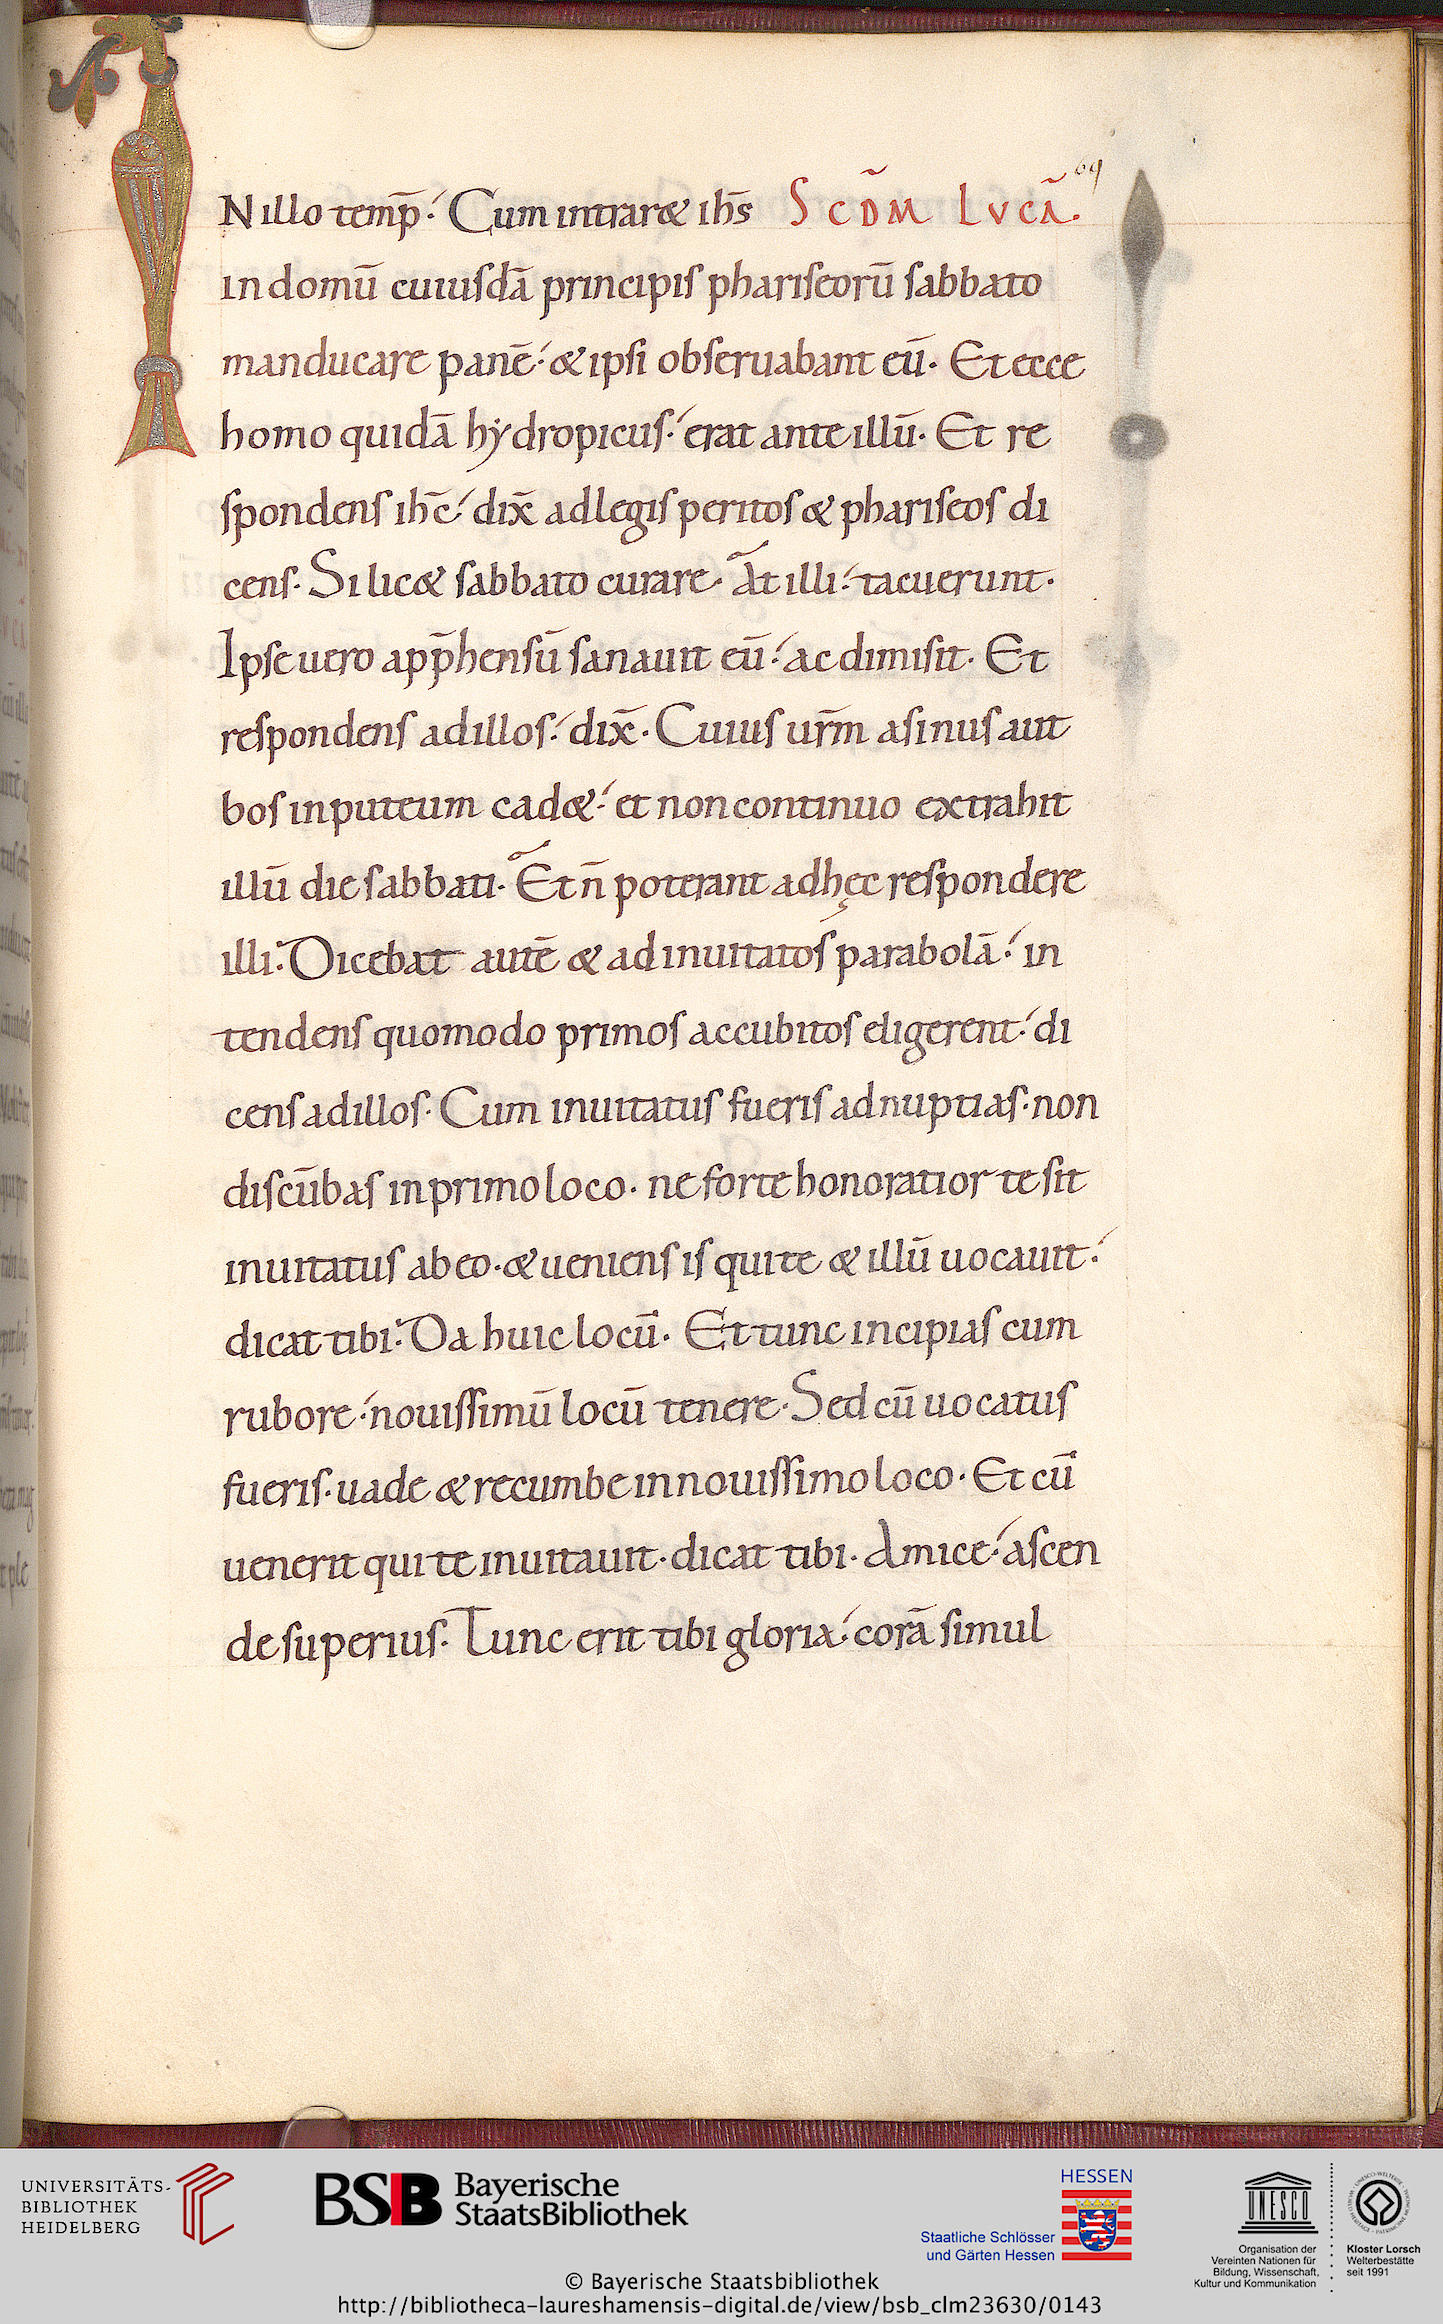 69
IN illo temp̄. Cum intraret ih̄s SCDM̄ LVCĀ.
in domū cuiusdā principis phariseorū sabbato
manducare panē. & ipsi obseruabant eū. Et ecce
homo quidā hẏdropicus. erat ante illū. Et re
spondens ih̄c. dix̄ ad legis peritos & phariseos di
cens. Si lic& sabbato curare. At illi. tacuerunt.
Ipse uero app̄hensū sanauit eū. ac dimisit. Et
respondens ad illos. dix̄. Cuius ur̄m asinus aut
bos in puteum cad&. et non continuo extrahit
illū die sabbati. Et n̄ poterant ad hęc respondere
illi. Dicebat autē & ad inuitatos parabolā. in
tendens quomodo primos accubitos eligerent. di
cens ad illos. Cum inuitatus fueris ad nuptias. non
discūbas in primo loco. ne forte honoratior te sit
inuitatus ab eo. & ueniens is qui te & illū uocauit.
dicat tibi. Da huic locū. Et tunc incipias cum
rubore. nouissimū locū tenere. Sed cū uocatus
fueris. uade & recumbe in nouissimo loco. Et cū
uenerit qui te inuitauit. dicat tibi. Amice. ascen
de superius. Tunc erit tibi gloria. corā simul
UNIVERSITÄTS-
BIBLIOTHEK
HEIDELBERG
BSB Bayerische
StaatsBibliothek
HESSEN
Staatliche Schlösser
und Gärten Hessen
UNESCO
Organisation der
Vereinten Nationen für
Bildung, Wissenschaft,
Kultur und Kommunikation
Kloster Lorsch
Welterbestätte
seit 1991
© Bayerische Staatsbibliothek
http://bibliotheca-laureshamensis-digital.de/view/bsb_clm23630/0143